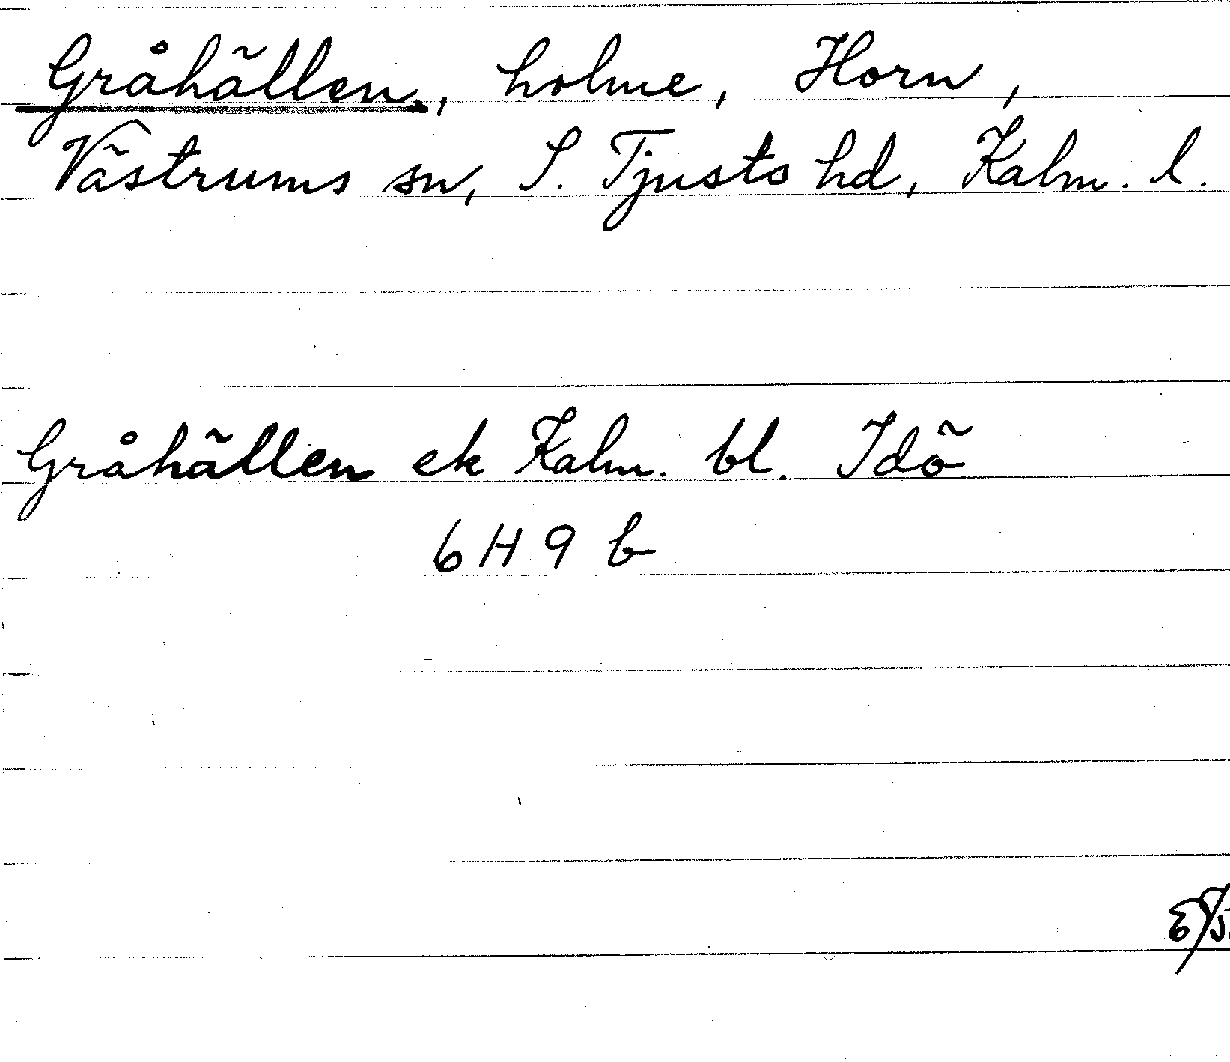 Gråhällen, holme, Horn,
Västrums sn, S. Tjusts hd, Kalm. l.
Gråhällen ek Kalm. bl. Idö
6 H 9 b